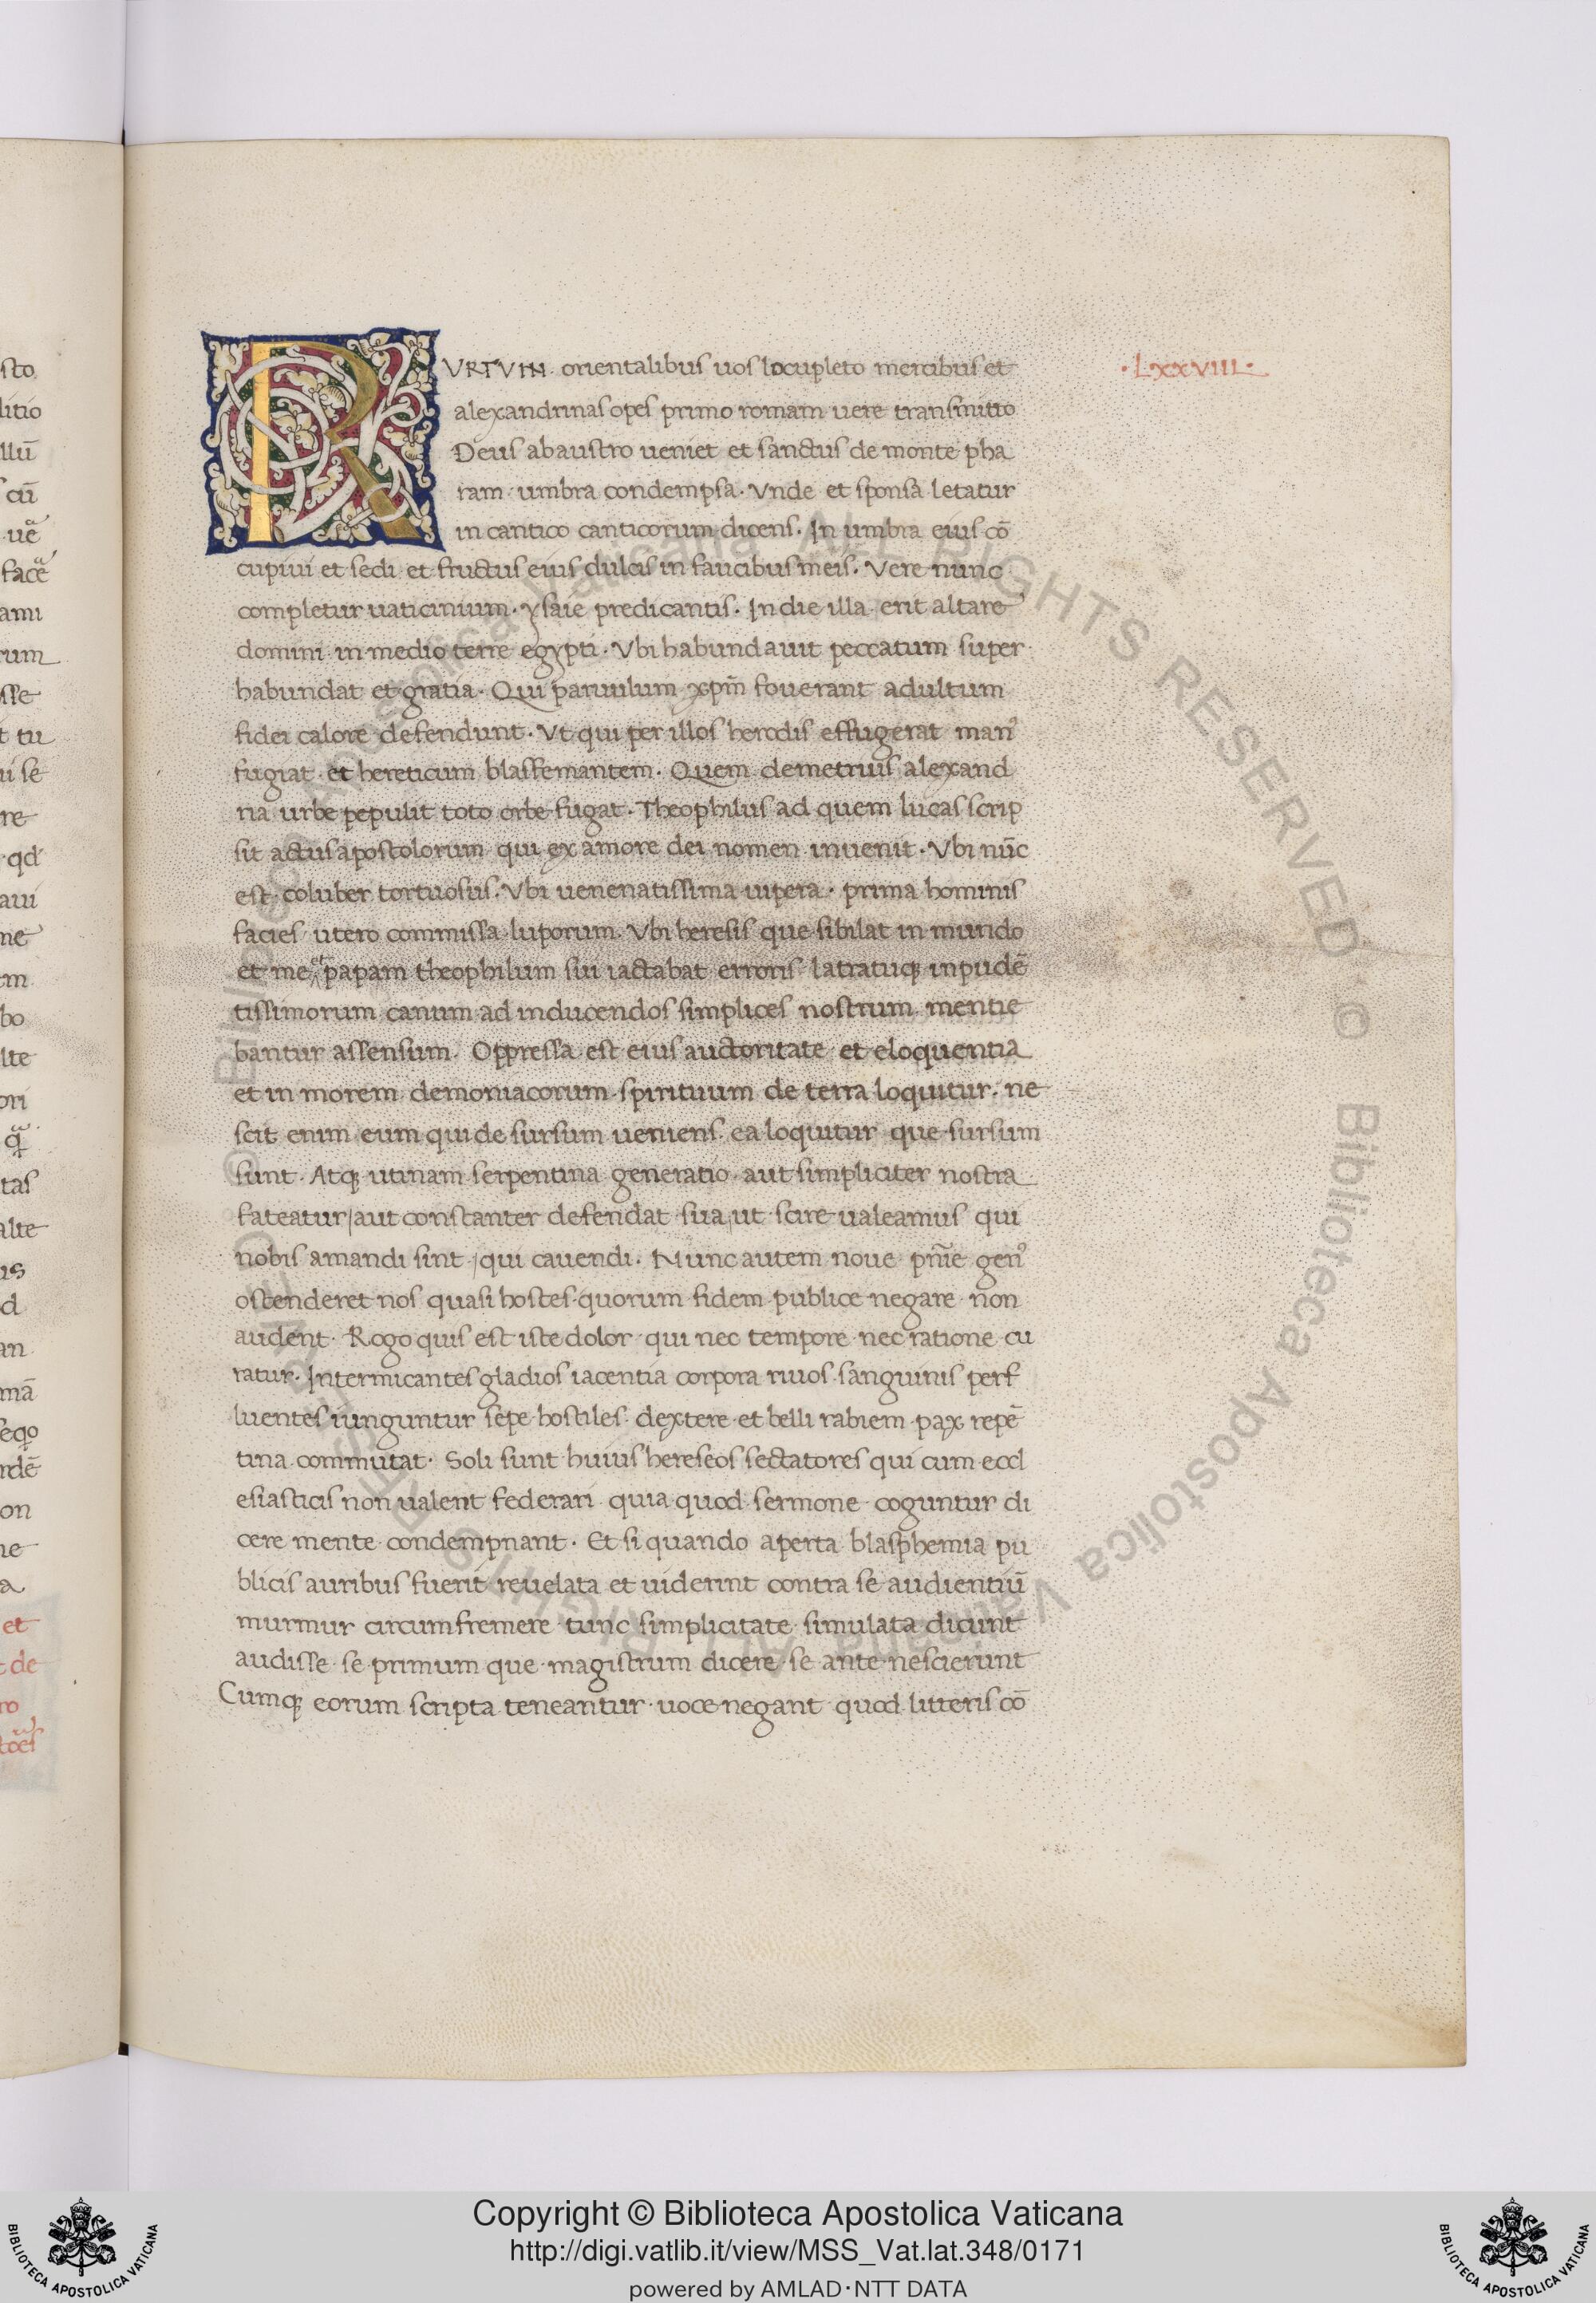 sto
litio
llū
cū
ami
rum
sse
t tu
ui se
re
qd
aui
ne
tm
bo
lte
ori
tas
alte
us
d
an
mā
seqo
rdē
on
ne
a
et
de
ro
RVRTVIN orientalibus uos locupleto mercibus et
·LXXVIII·
alexandrinas opes primo romam uere transmitto
Deus ab austro ueniet et sanctus de monte pha
ram umbra condempsa. Vnde et sponsa letatur
in cantico canticorum dicens. In umbra eius cō
cupiui et sedi et fructus eius dulcis in faucibus meis. Vere nunc
completur uaticinium ysaie predicantis. In die illa erit altare
domini in medio terre egypti. Vbi habundauit peccatum super
habundat et gratia. Qui paruulum xpm̄ fouerant adultum
fidei calore defendunt. Vt qui per illos herodis effugerat man᾿
fugiat et hereticum blasfemantem. Quem demetrius alexand
ria urbe pepulit toto orbe fugat. Theophilus ad quem lucas scrip
sit actus apostolorum qui ex amore dei nomen inuenit. Vbi nūc
est coluber tortuosus. Vbi uenenatissima uipera. prima hominis
facies utero commissa luporum. Vbi heresis que sibilat in mundo
et me et papam theophilum sui iactabat erroris latratuq; inpudē
tissimorum canum ad inducendos simplices nostrum mentie
bantur assensum. Oppressa est eius auctoritate et eloquentia
et in morem demoniacorum spirituum de terra loquitur. ne
scit enim eum qui de sursum ueniens ea loquitur que sursum
sunt. Atq; utinam serpentina generatio aut simpliciter nostra
fateatur/aut constanter defendat sua/ut scire ualeamus qui
nobis amandi sint/qui cauendi. Nunc autem noue pn̄ie gen᾿
ostenderet nos quasi hostes quorum fidem publice negare non
audent. Rogo quis est iste dolor qui nec tempore nec ratione cu
ratur. Intermicantes gladios iacentia corpora riuos sanguinis perf
luentes iunguntur sepe hostiles dextere et belli rabiem pax repē
tina commutat. Soli sunt huius hereseos sectatores qui cum eccl
esiasticis non ualent federari quia quod sermone coguntur di
cere mente condempnant. Et si quando aperta blasphemia pu
blicis auribus fuerit reuelata et uiderint contra se audientiū
murmur circumfremere tunc simplicitate simulata dicunt
audisse se primum que magistrum dicere se ante nescierunt
Cumq; eorum scripta teneantur uoce negant quod litteris cō
© Biblioteca Apostolica Vaticana ALL RIGHTS RESERVED © Biblioteca Apostolica Vaticana ALL RIGHTS RESERVED
Copyright © Biblioteca Apostolica Vaticana
http://digi.vatlib.it/view/MSS_Vat.lat.348/0171
powered by AMLAD·NTT DATA
BIBLIOTECA APOSTOLICA VATICANA
BIBLIOTECA APOSTOLICA VATICANA